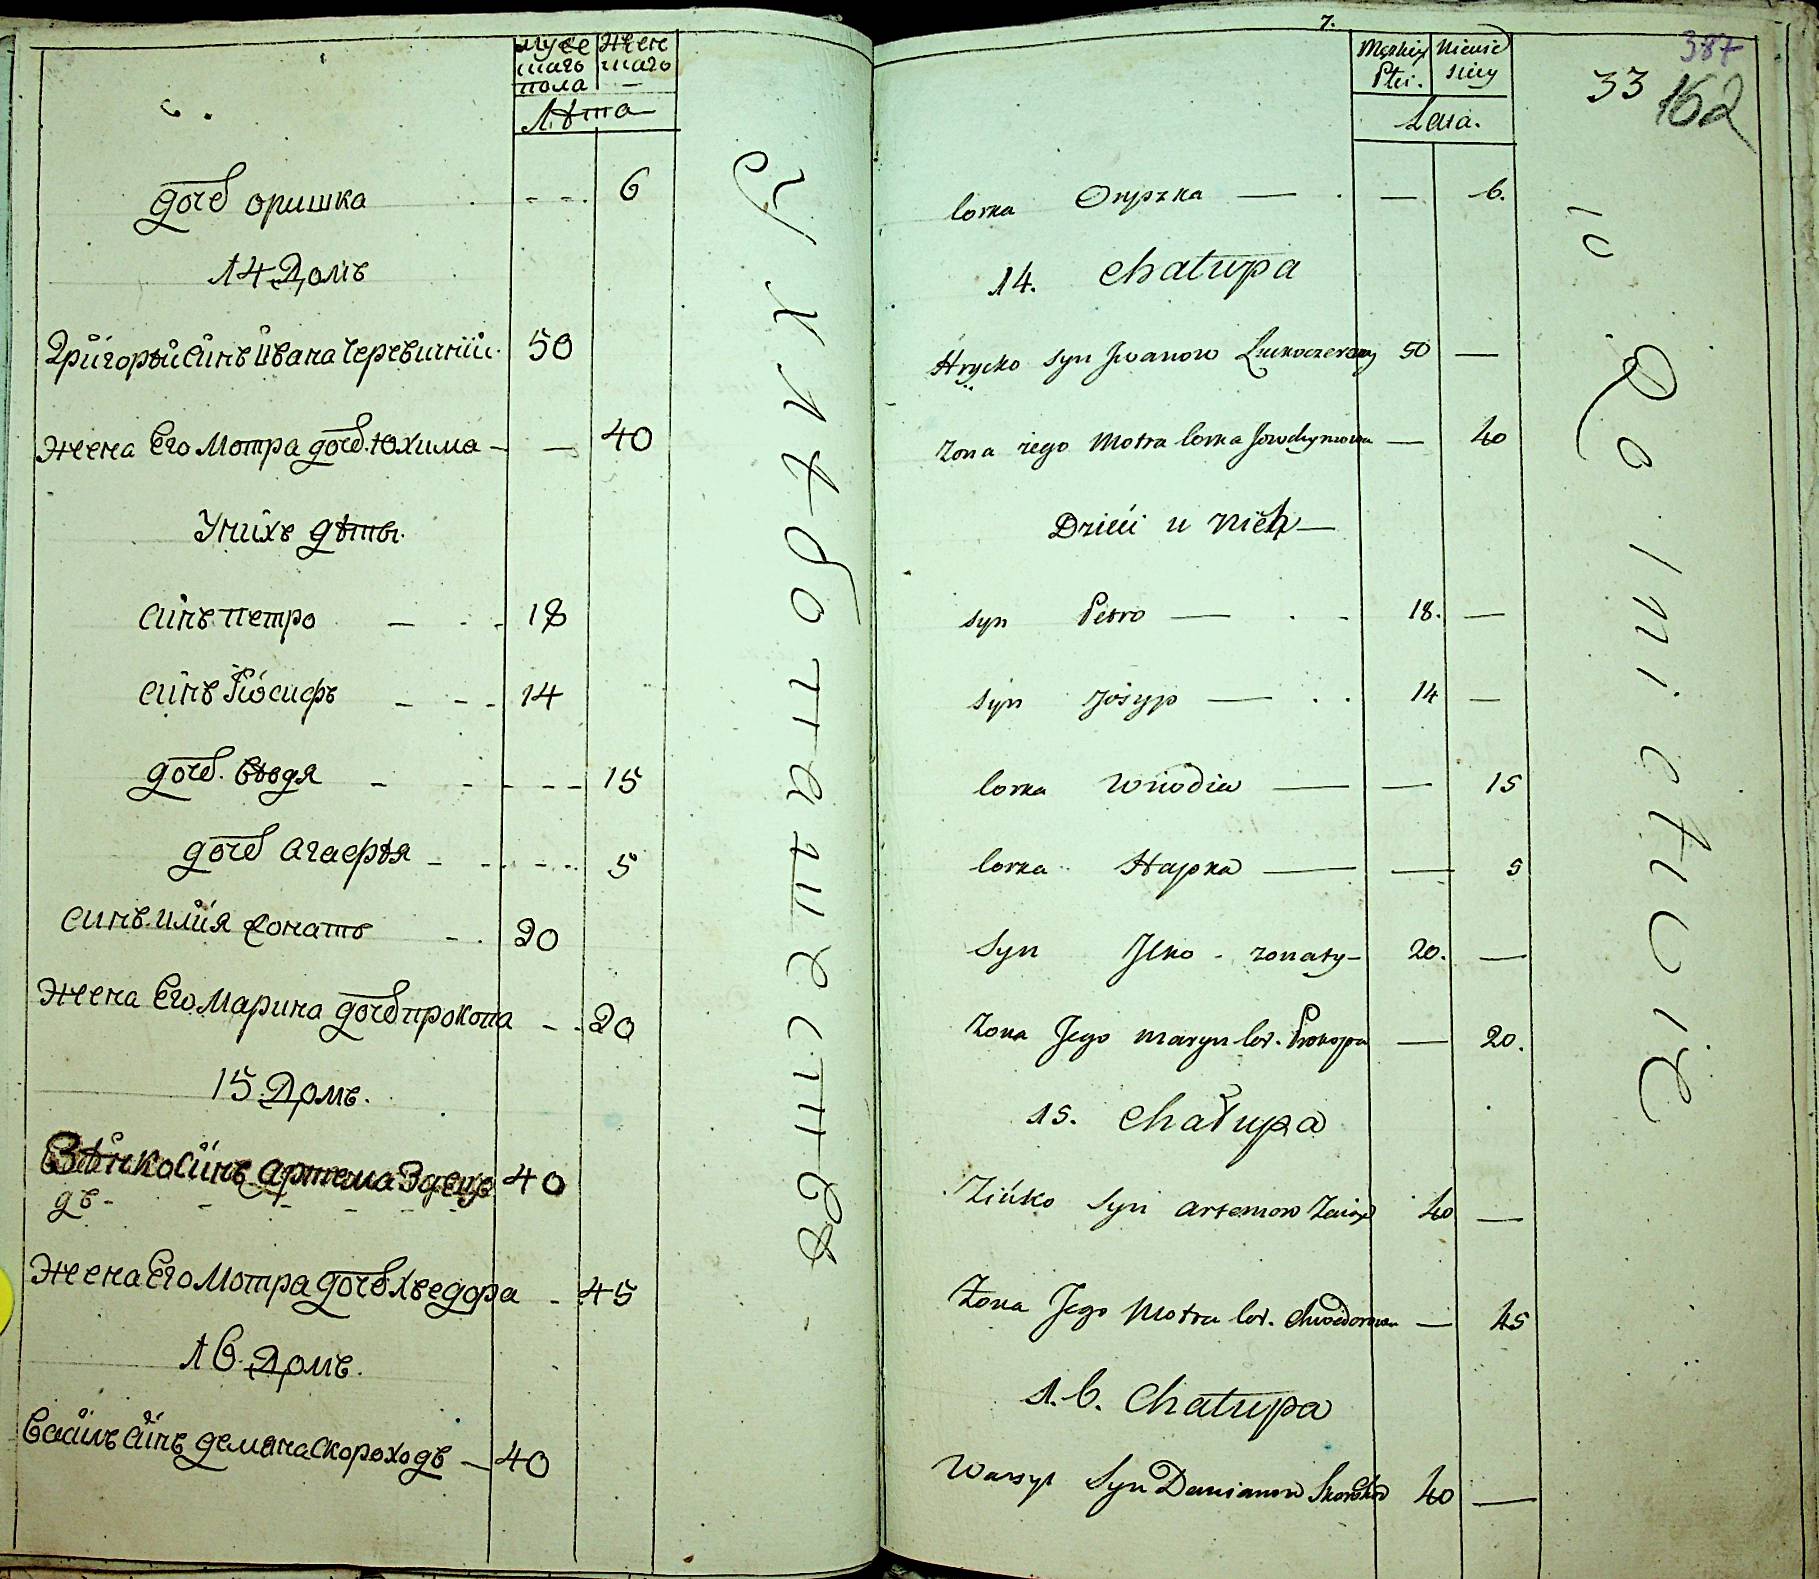 мужескаго пола
женскаго
Лѣта
дочь оришка - - - 6
14 Домъ
Григорый Синъ Ивана Черевичный 50
Жена Его Мотра дочь Юхима - — 40
У нихъ дѣты.
Синъ петро — - - 18
Синъ Іосифъ — - - 14
дочь Вѣвдя - - - - - 15
дочь Агафѣя - - - - 5
Синъ илія жонатъ - - 20
Жена Его Марина дочь прокопа - - 20
15 Домъ.
Зѣнко Синъ артема
дъ -
40
Жена Его Мотра дочь Хведора - 45
16 Домъ.
Василь Синъ демяна Скороходъ — 40
Хлѣбопашество
7.
Męskiey Płci.
Niewieściey
Lata.
387
33 162
Corka Oryszka — . — 6.
14. Chałupa
Hrycko syn Iwanow 50 —
Zona iego Motra Corka Jowchymowa — 40
Dzieci u nich —
syn Petro — . - 18. —
syn Josyp — . . 14 —
Corka Wiwdia — — 15
Corka Hapka — — 5
Syn Ilko - zonaty - 20. —
Zona Jego Maryn Cor. Prokopa — 20.
15. Chałupa
Zińko Syn Artemow 40 —
Zona Jego Motra Cor. Chwedorowa — 45
16. Chałupa
Wasyl Syn Damianow Skorochod 40 —
Rolnictwie